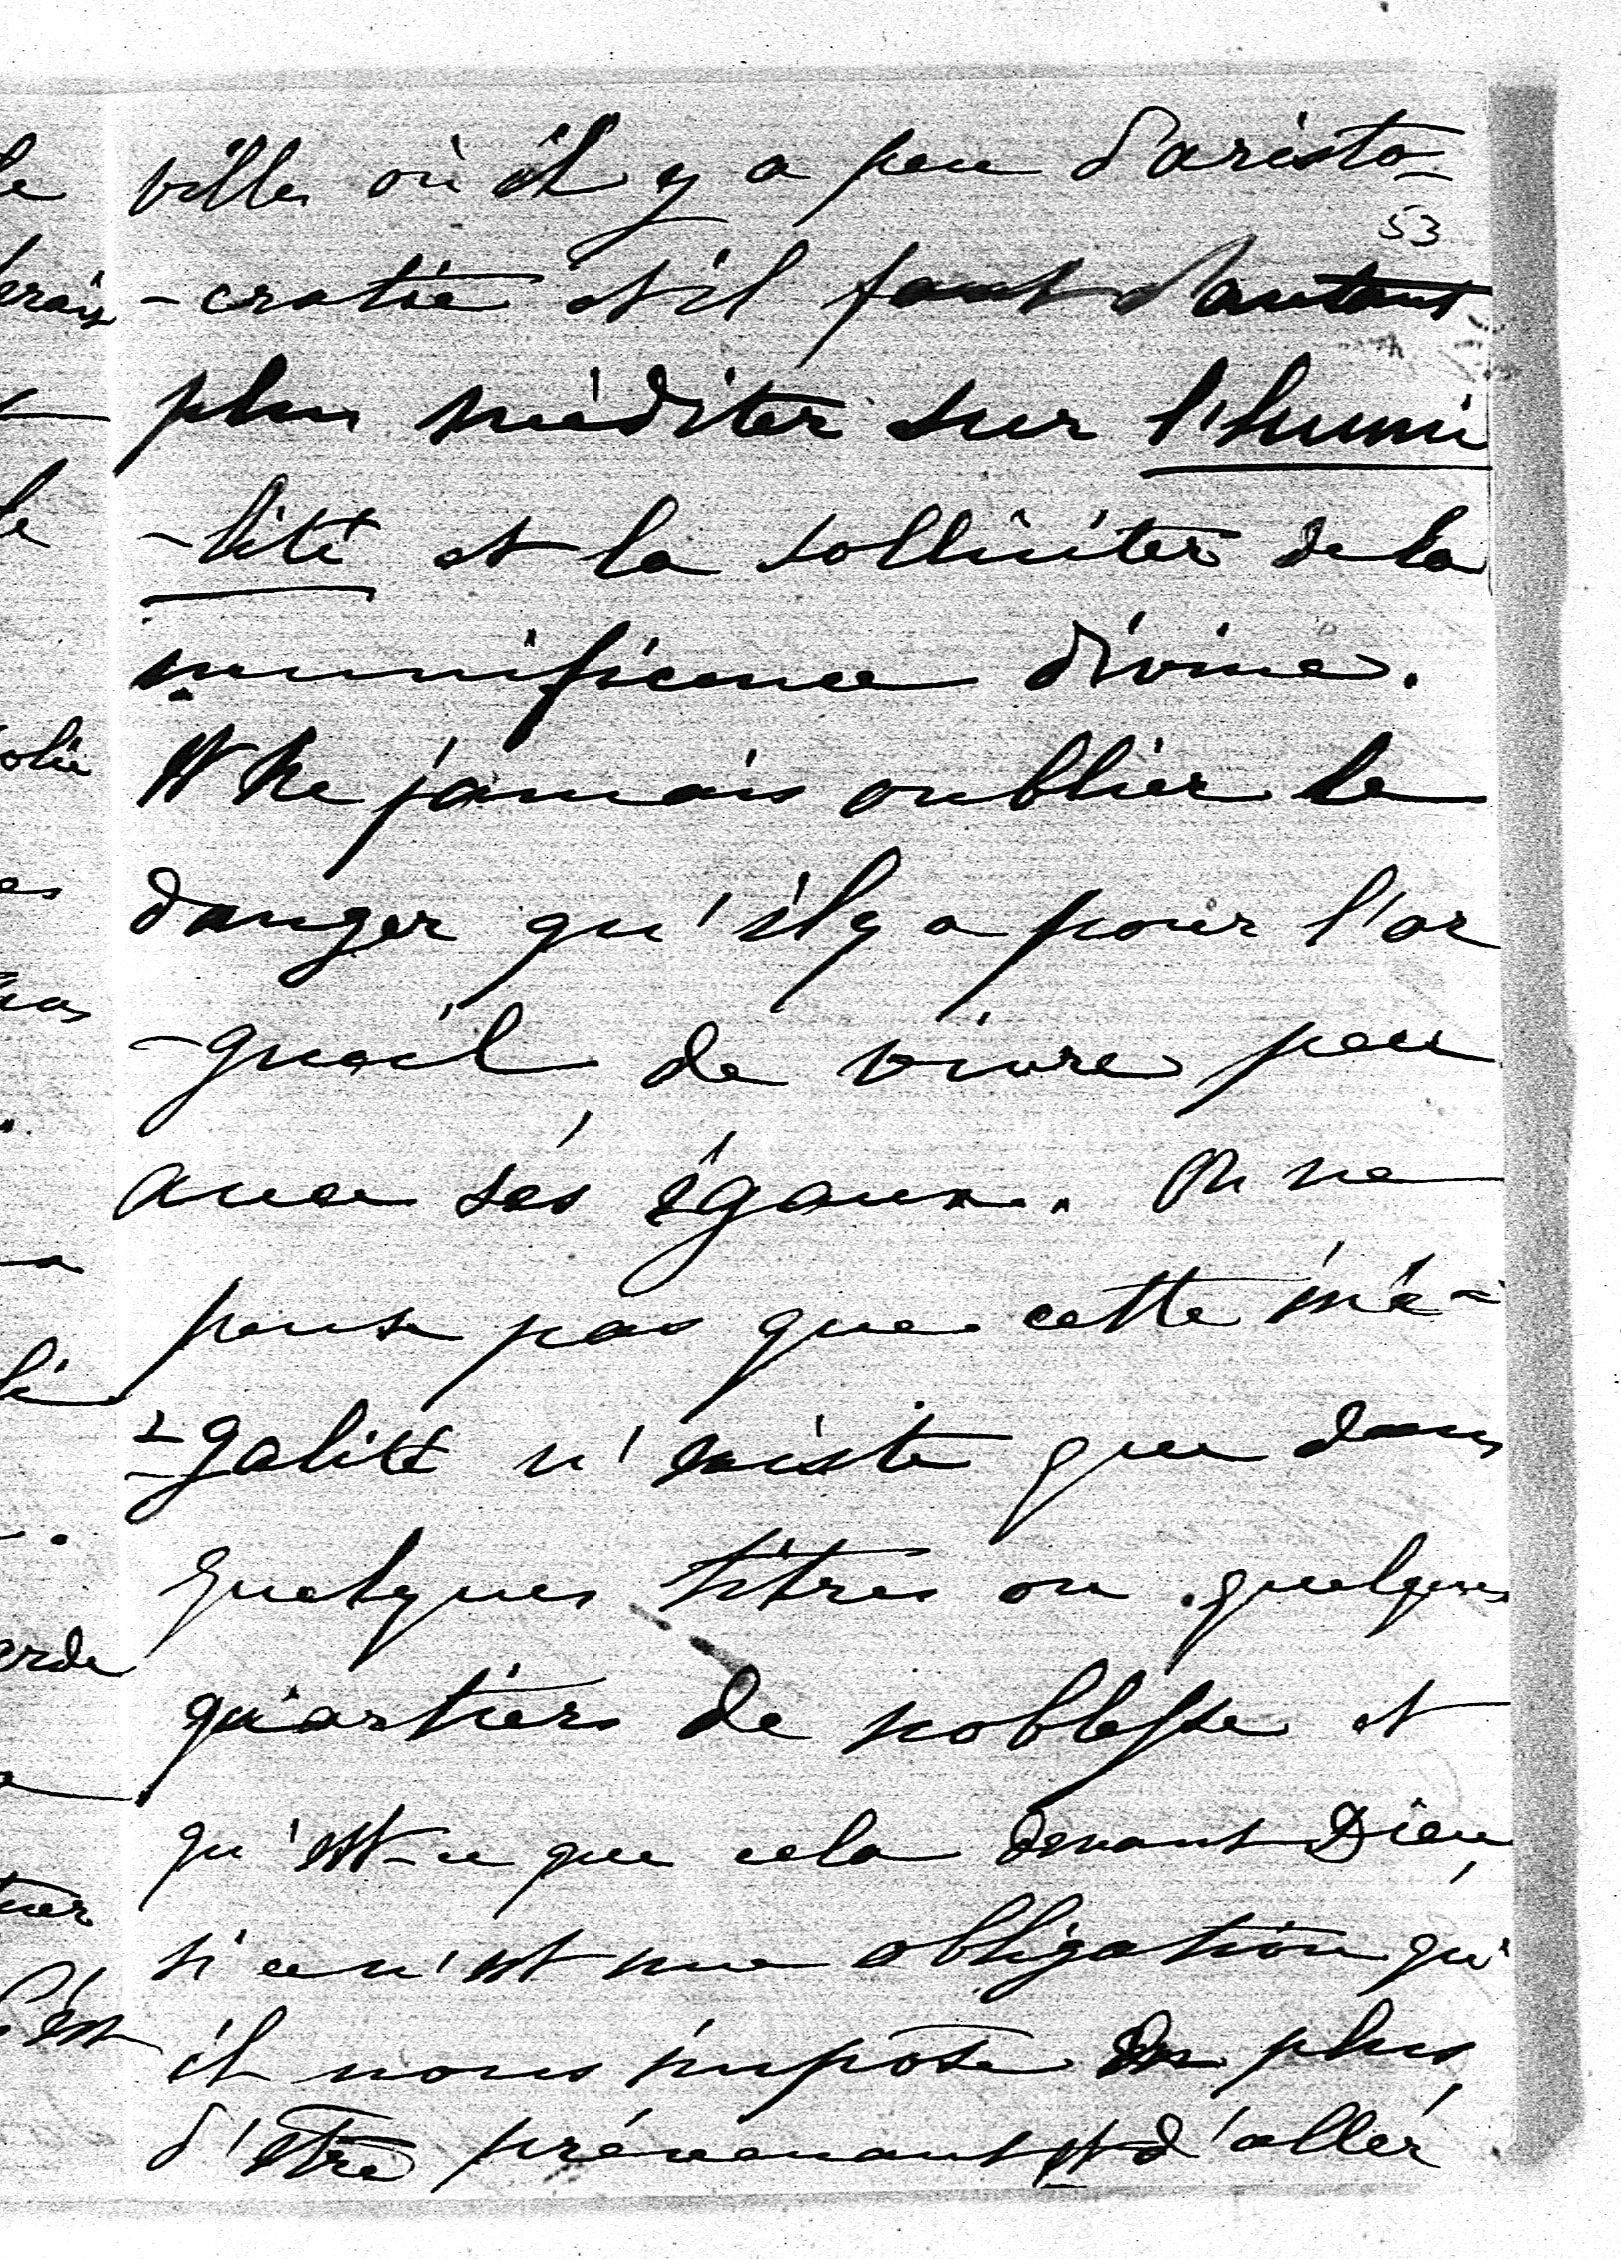 villes où il y a peu d'aristo-
53
-cratie et il faut d'autant
plus méditer sur l'humi
-lité et la solliciter de la
munificence divine.
Et ne jamais oublier le
danger qu'il y a pour l'or
-gueil de vivre peu
avec ses égaux. On ne
pense pas que cette iné-
-galité n'existe que dans
quelques titres ou quelques
quartiers de noblesse et
qu'est-ce que cela devant Dieu,
si ce n'est une obligation qu'
il nous impose de plus,
d'être prévenant et d'aller